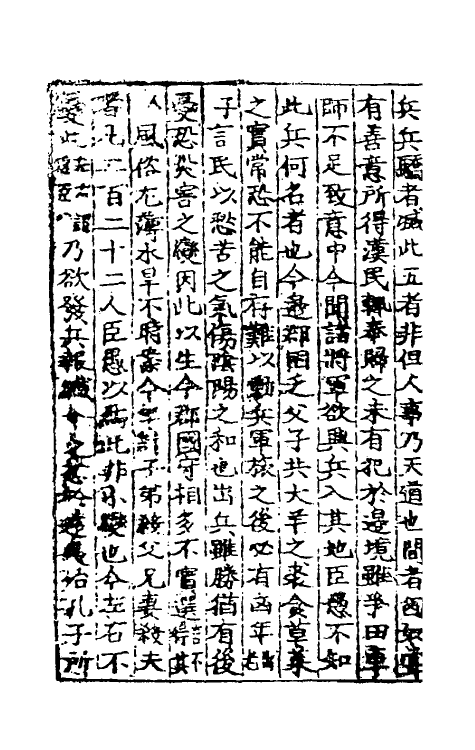 兵兵驕者滅此五者非但人事乃天道也間者匈奴嘗
有善意所得漢民輒奉歸之未有犯於邊境雖爭田車
師不足致意中今聞諸將軍欲興兵入其地臣愚不知
此兵何名者也今邊郡困乏父子共犬羊之裘食草萊
之實常恐不能自存難以動兵軍旅之後必有凶年
子言民以愁苦之氣傷陰陽之和也出兵雖勝猶有後
憂恐災害之變因此以生今郡國守相多不實選
風俗尤薄水旱不時案今年計子弟殺父兄妻殺夫
者凡二百二十二人臣愚以為此非小變也今左右不
憂此乃欲發兵報 孔子所